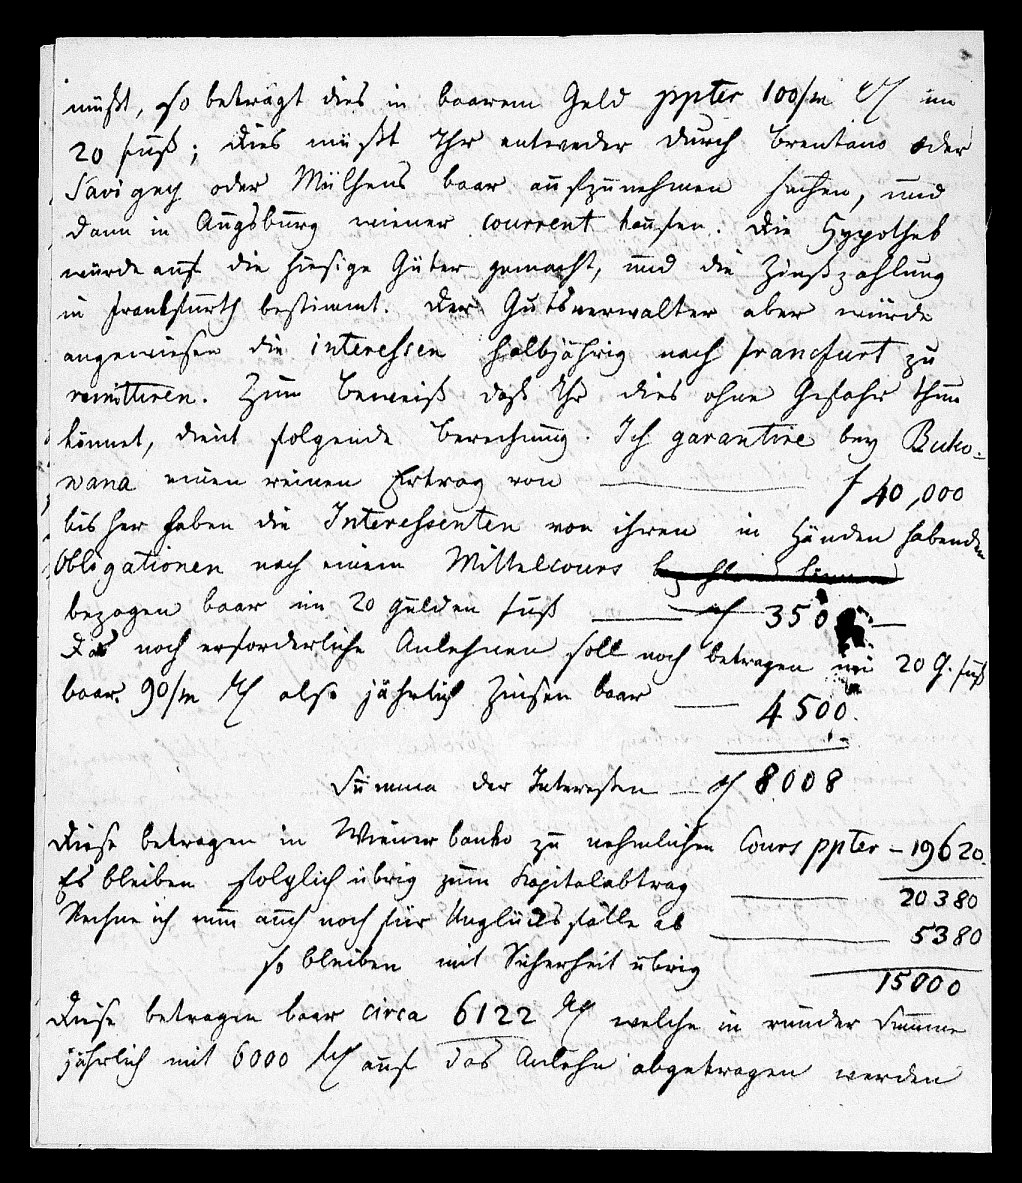 müßt, so beträgt dies in baarem Geld ppter 100/m rh im
20 fuß; dies müßt Ihr entweder durch Brentano oder
Savigny oder Mülhens baar aufzunehmen suchen, und
dann in Augsburg wiener courrent kaufen. Die Hypothek
würde auf die hiesige Güter gemacht, und die Zinßzahlung
in Frankfurth bestimmt. Der Gutsverwalter aber würde
angewiesen die interessen halbjährig nach francfurt zu
remittiren. Zum Beweiß daß Ihr dies ohne Gefahr thun
könnet, dient folgende Berechnung. Ich garantire bey Buko-
wana einen reinen Ertrag von f 40,000
bisher haben die Interessenten von ihren in Händen habenden
Obligationen nach einem Mittelcours
bezogen baar im 20 Gulden fuß f 3508
Das noch erforderliche Anlehnen soll noch betragen im 20 G. fuß
baar 90/m rh also jährlich Zinsen baar 4500.
Summa der Interessen f 8008
Diese betragen in Wiener banko zu nehmlichen Cours ppter – 19620.
Es bleiben folglich übrig zum Kapitalabtrag 20380
Rechne ich nun auch noch für Unglücksfälle ab 5380
so bleiben mit Sicherheit übrig 15000
Diese betragen baar circa 6122 rh welche in runder Summe
jährlich mit 6000 rh auf das Anlehn abgetragen werden